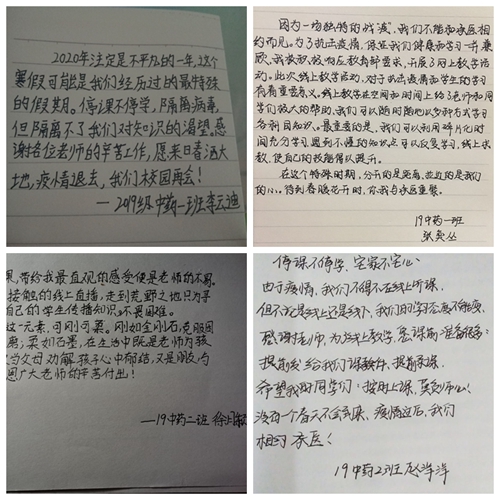 2020年注定是不平凡的一年,这个
寒假可能是我们经历过的最特殊
的假期。停课不停学,隔离病毒,
但隔离不了我们对知识的渴望。感
谢各位老师的辛苦工作,愿来日春洒大
地,疫情退去,我们校园再会!
—2019级中药一班李云迪
因为一场独特的"战波",我们不能和承医相
约而见。为了抗击疫情,保证我们健康和学习一并兼
欣,我校积极响应教育部要求,开展了网上教学活
动。此次线上教学活动,对于抗击疫情和学生的学习
有着重要意义。线上教学在空间和时间上给了老师和同
学们极大的帮助,我们可以随时随地以多种方式学习
各科目知识。最重要的是,我们可以利用碎片化时
间充分学习,遇到不懂的知识点可以反复学习,线上求
教,使自己的技能得以提升。
在这个特殊时期,分开的是距离,拉近的是我们
的心。待到春暖花开时,你我与承医重聚。
19中药一班
张奕丛
果,带给我最直观的感受便是老师的不易。
接触的线上直播,走到荒野之地只为寻
自己的学生传播知识。环畏困难。
这一元素,可刚可柔。刚如金刚石,克服困
难;柔如石墨,在生活中既是老师为孩
当父母劝解孩子心中郁结,又是朋友与
恩广大老师的辛苦付出!
—19中药二班 徐
停课不停学、宅家不宅心
由于疫情,我们不得不在线上听课,
但不论是线上还是线下,我们的学习态度不能
感谢老师,为线上教学、录课前准备很多:
提前发给我们课软件、提前录课
希望我的同学们:按时上课,莫负师心!
没有一个春天不会到来,疫情过后,我们
相约承医!
19中药2班赵洋洋